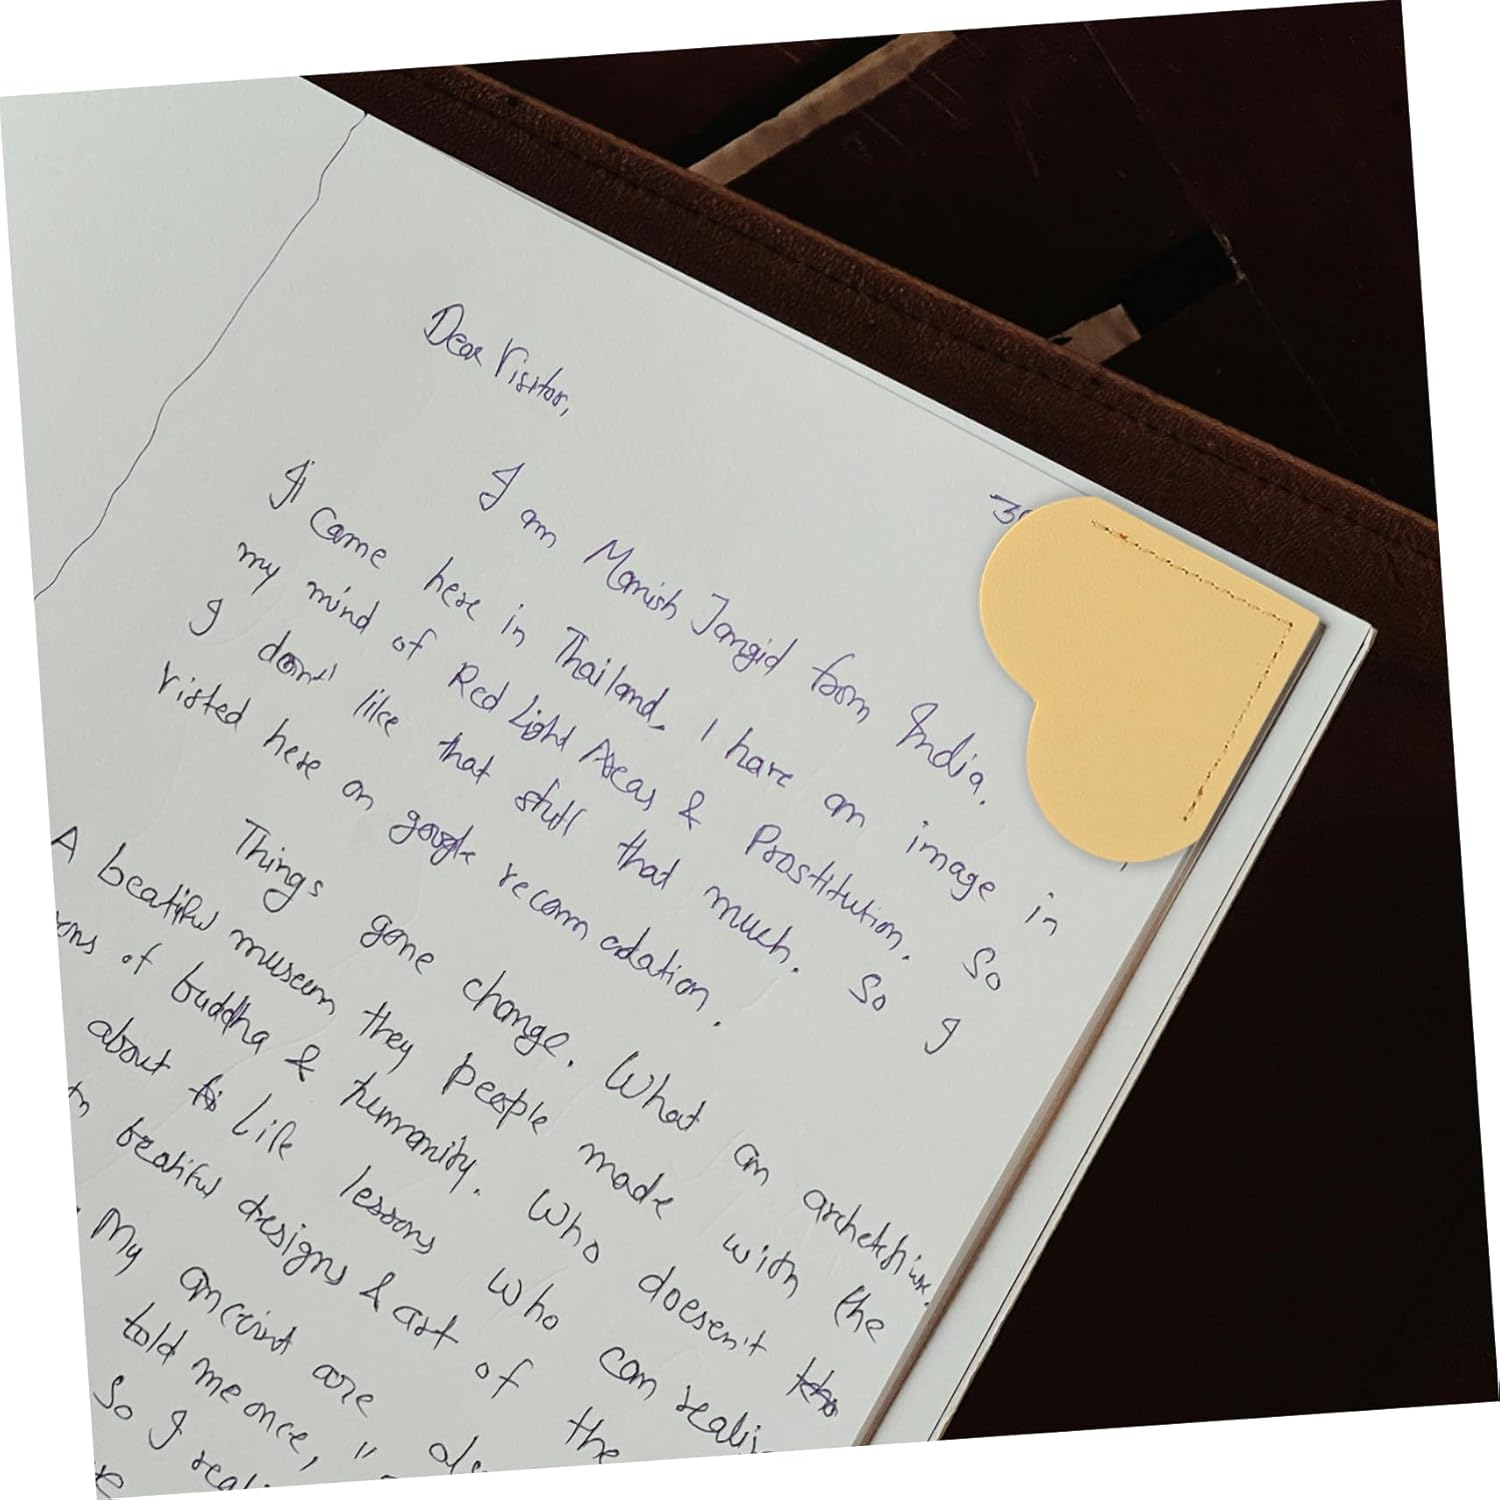 30
Dear Visitor,
I am Manish Jangid form India.
I came here in Thailand, I have an image in
my mind of Red Light Areas & Prostitution. So
I don't like that stuff that much. So I
visited here on google recomm adation.
Things gone change. What an archetchture.
A beatiful museum they people made with the
of buddha & humanity. Who doesen't
about Life lessons who can realis
beatiful designs & art of the
My ancint are als
told me once, "
So I real